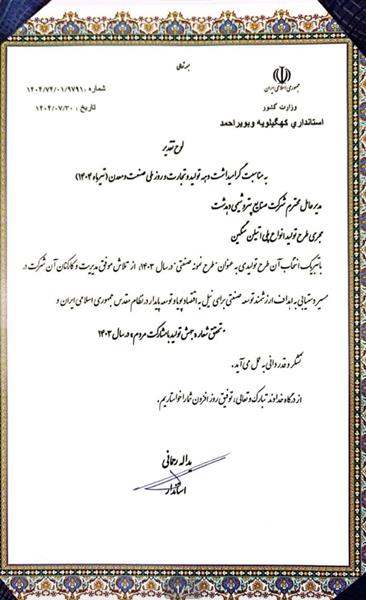 بسمه تعالی
جمهوری اسلامی ایران
وزارت کشور
استانداری کهگیلویه وبویراحمد
شماره : ۱۴۰۴/۷۴/۰۱/۹۷۹۱
تاریخ : ۱۴۰۴/۰۷/۳۰
لوح تقدیر
به مناسبت گرامیداشت دهه تولید و تجارت و روز ملی صنعت و معدن (تیرماه ۱۴۰۴)
مدیر عامل محترم شرکت صنایع پتروشیمی دهدشت
مجری طرح تولید انواع پلی اتیلن سنگین
با تبریک انتخاب آن طرح تولیدی به عنوان "طرح نمونه صنعتی" در سال ۱۴۰۳، از تلاش موفق مدیریت و کارکنان آن شرکت در
مسیر دستیابی به اهداف ارزشمند توسعه صنعتی برای نیل به اقتصاد پویا و توسعه پایدار در نظام مقدس جمهوری اسلامی ایران و
تحقق شعار «جهش تولید با مشارکت مردم» در سال ۱۴۰۳
تشکر و قدردانی به عمل می‌آید.
از درگاه خداوند تبارک و تعالی، توفیق روز افزون شما را خواستاریم.
یداله رحمانی
استاندار